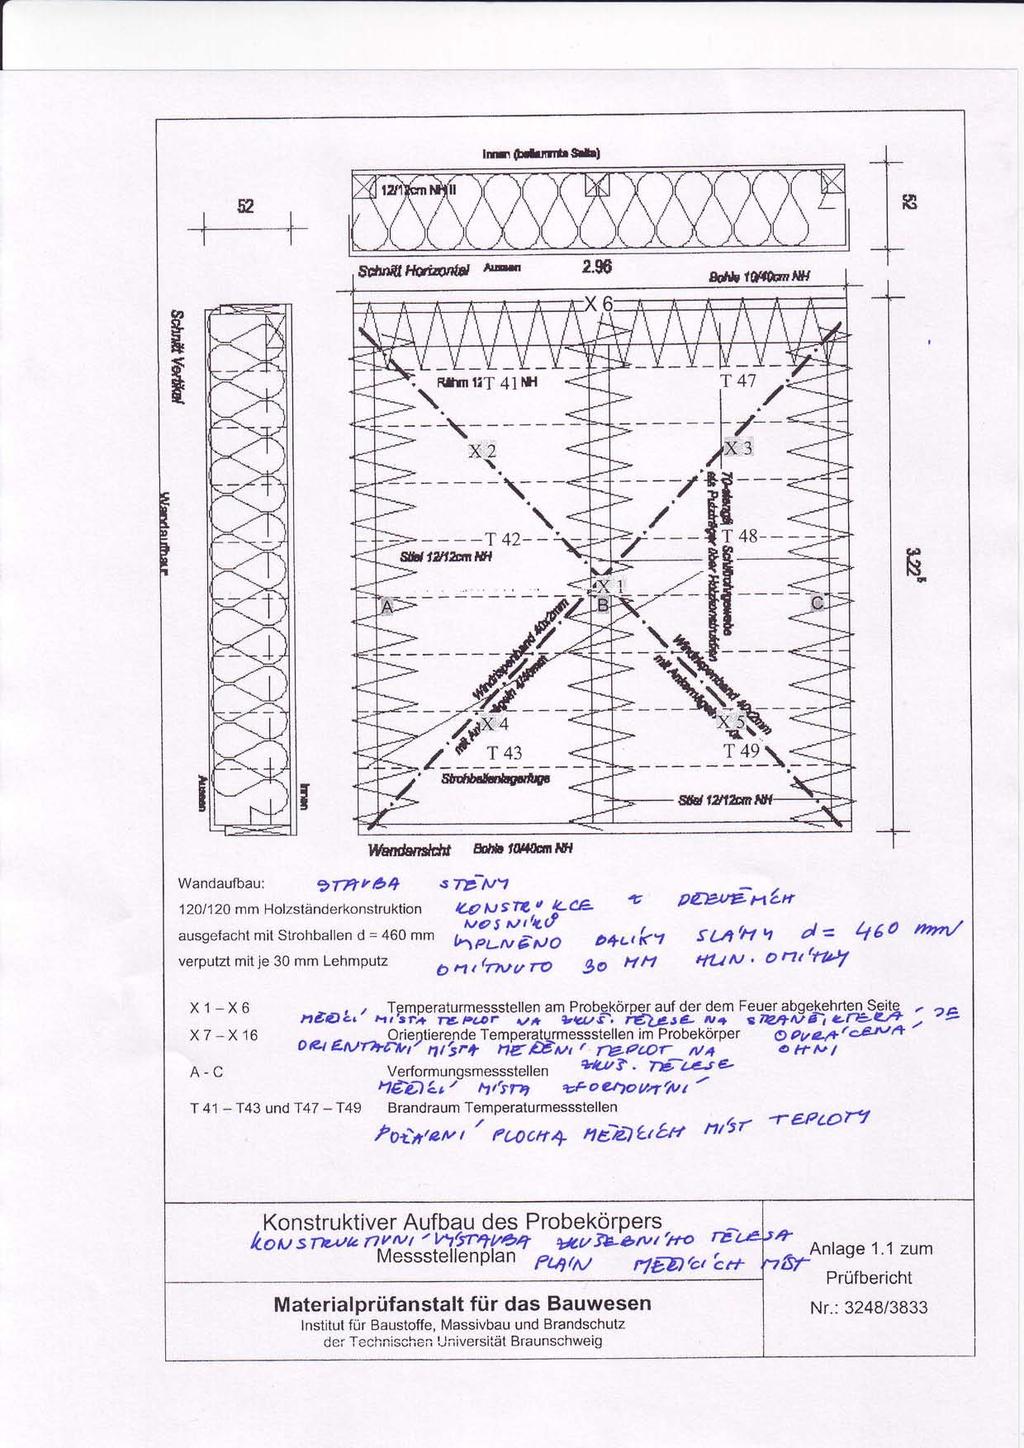 Innen (beflammte Seite)
12/12cm NH II
52
52
Schnitt Horizontal
Aussen
2.96
Bohle 10/40cm NH
X 6
Schnitt Vertikal
Rähm 12 T 41 NH
T 47
X 2
X 3
70-stengel Schilfrohrgewebe
als Putzträger über Holzkonstruktion
T 42
T 48
Stiel 12/12cm NH
3.22⁵
X 1
A
B
C
Windrispenband 40x2mm
mit Ankernägeln 4/40mm
Windrispenband 40x2mm
mit Ankernägeln
X 4
X 5
T 43
T 49
Strohballenlagerfuge
Stiel 12/12cm NH
Aussen
Innen
Wandaufbau
Wandansicht
Bohle 10/40cm NH
Wandaufbau: STAVBA STĚNY
120/120 mm Holzständerkonstruktion KONSTRUKCE Z DŘEVĚNÝCH
NOSNÍKŮ
ausgefacht mit Strohballen d = 460 mm VYPLNĚNO BALÍKY SLÁMY d = 460 mm
verputzt mit je 30 mm Lehmputz OMÍTNUTO 30 MM HLIN. OMÍTKY
X 1 – X 6 Temperaturmessstellen am Probekörper auf der dem Feuer abgekehrten Seite
MĚŘÍCÍ MÍSTA TEPLOT NA ZKUŠ. TĚLESE NA STRANĚ, KTERÁ JE
X 7 – X 16 Orientierende Temperaturmessstellen im Probekörper
ORIENTAČNÍ MÍSTA MĚŘENÍ TEPLOT NA ZKUŠ. TĚLESE
OHNI
A - C Verformungsmessstellen
MĚŘÍCÍ MÍSTA ZFORMOVÁNÍ
T 41 – T43 und T47 – T49 Brandraum Temperaturmessstellen
POŽÁRNÍ PLOCHA MĚŘÍCÍCH MÍST TEPLOTY
Konstruktiver Aufbau des Probekörpers
KONSTRUKTIVNÍ VÝSTAVBA ZKUŠEBNÍHO TĚLESA
Messstellenplan PLÁN MĚŘÍCÍCH MÍST
Anlage 1.1 zum
Prüfbericht
Nr.: 3248/3833
Materialprüfanstalt für das Bauwesen
Institut für Baustoffe, Massivbau und Brandschutz
der Technischen Universität Braunschweig